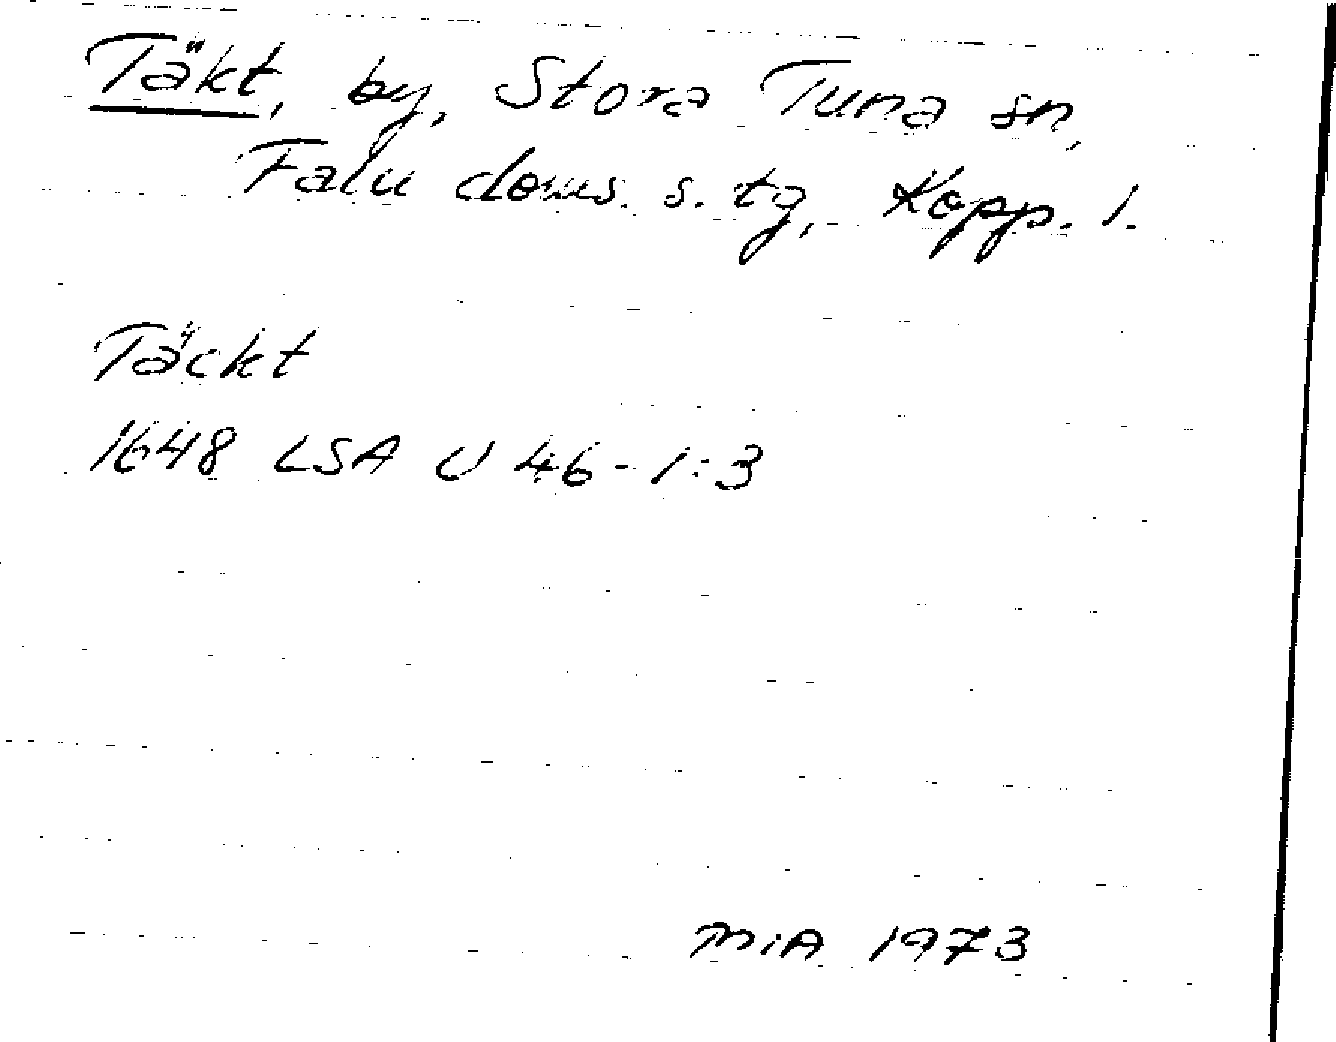 Täkt, by, Stora Tuna sn,
Falu doms. s. tg, Kopp. l.
Täckt
1648 LSA U 46-1:3
MiA 1973